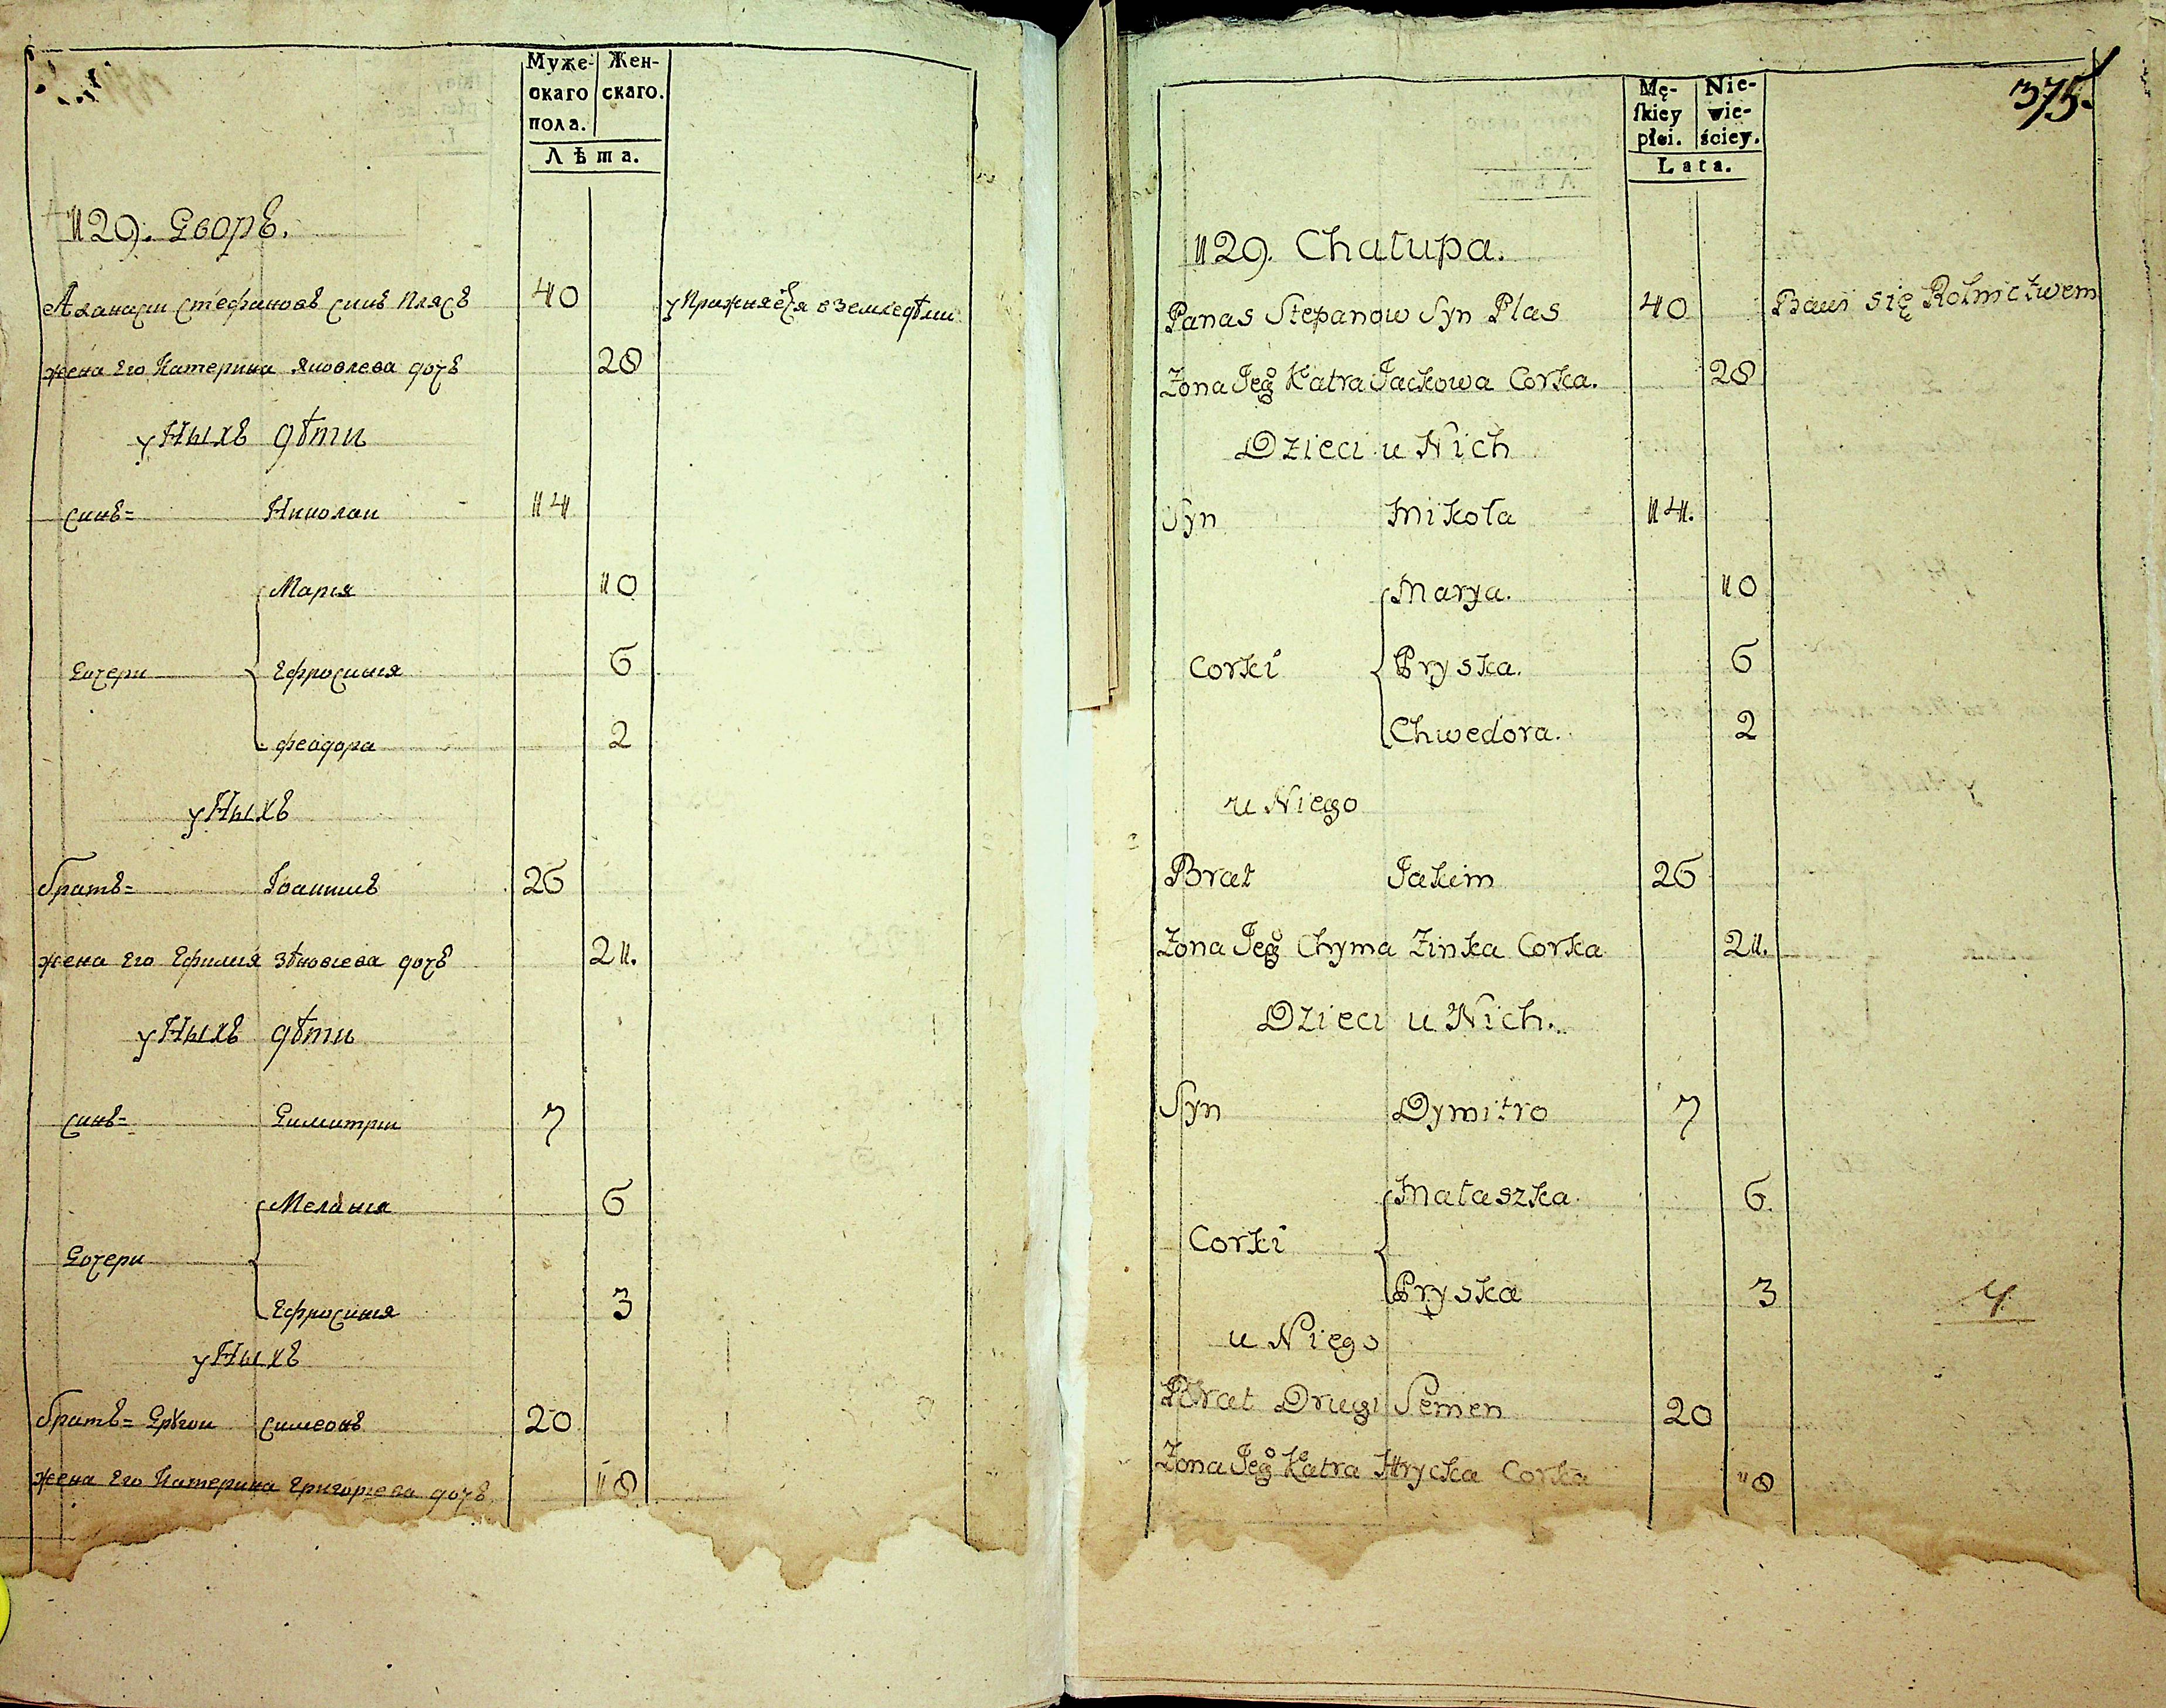 Муже- Жен-
скаго скаго.
пола.
Лѣта.
129. Дворъ.
Аѳанасіи Стефановъ синъ Плясъ 40 упражняется в земледѣліи
жена Его Катерина Яковлева дочъ 28
у Ныхъ дѣти
синъ= Николаи 14
Марія 10
Дочери Ефросинія 6
Феодора 2
у Ныхъ
братъ= Іоакимъ 26
жена Его Ефимія Зѣновіева дочъ 21.
у Ныхъ дѣти
синъ= Димитріи 7
Меланія 6
Дочери
Ефросинія 3
у Ныхъ
братъ= Другои Симеонъ 20
жена Его Катерина Григоріева дочъ 18
375.
Mę- Nie-
skiey wie-
płci. ściey.
Lata.
129. Chałupa.
Panas Stepanow Syn Plas 40 Bawi się Rolnictwem
Zona Jego Katra Jackowa Corka. 28
Dzieci u Nich
Syn Mikoła 14.
Marya. 10
Corki Pryska. 6
Chwedora. 2
u Niego
Brat Jakim 26
Zona Jego Chyma Zinka Corka 21.
Dzieci u Nich.
Syn Dymitro 7
Małaszka 6.
Corki
Pryska 3
4
u Niego
Brat Drugi Semen 20
Zona Jego Katra Hrycka Corka 18